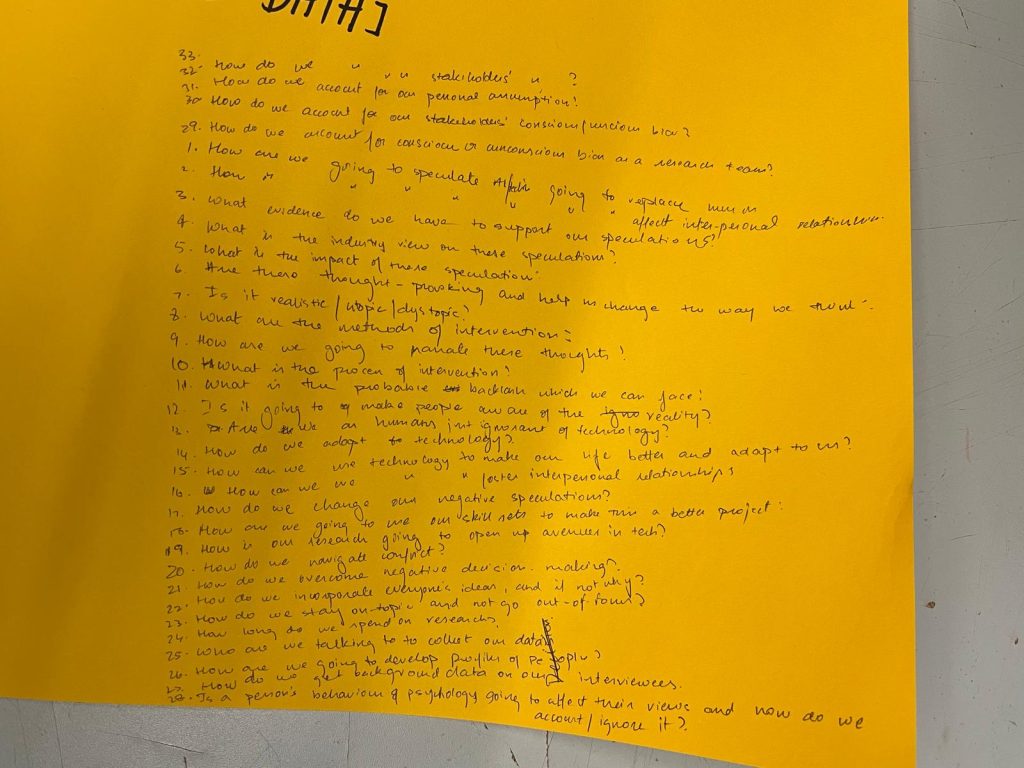 DATA]
33. How do we " " " stakeholders' " ?
32. How do we account for our personal assumption?
31. How do we account for our stakeholders' conscious/uncious bias?
30.
29. How do we account for conscious or unconscious bias as a research team?
1. How are we going to speculate going to replace
2. How " " " " " " affect inter-personal relationships.
3. What evidence do we have to support our speculations?
4. What is the industry view on these speculations?
5. What is the impact of these speculation?
6. Are these thought-provoking and help us change the way we think.
7. Is it realistic/utopic/dystopic?
8. What are the methods of intervention?
9. How are we going to these thoughts?
10. What is the process of intervention?
11. What is the probable backlash which we can face?
12. Is it going to make people aware of the reality?
13. Are we as humans just ignorant of technology?
14. How do we adapt to technology?
15. How can we use technology to make our life better and adapt to us?
16. How can we use " " foster interpersonal relationships
17. How do we change our negative speculations?
18. How are we going to use our skill sets to make this a better project?
19. How is our research going to open up avenues in tech?
20. How do we navigate conflict?
21. How do we overcome negative decision-making?
22. How do we incorporate everyone's ideas, and if not why?
23. How do we stay on-topic and not go out-of focus?
24. How long do we spend on research?
25. Who are we talking to to collect our data
26. How are we going to develop profiles of people?
27. How do we get background data on our interviewees.
28. Is a person's behaviour & psychology going to affect their views and how do we
account/ignore it?